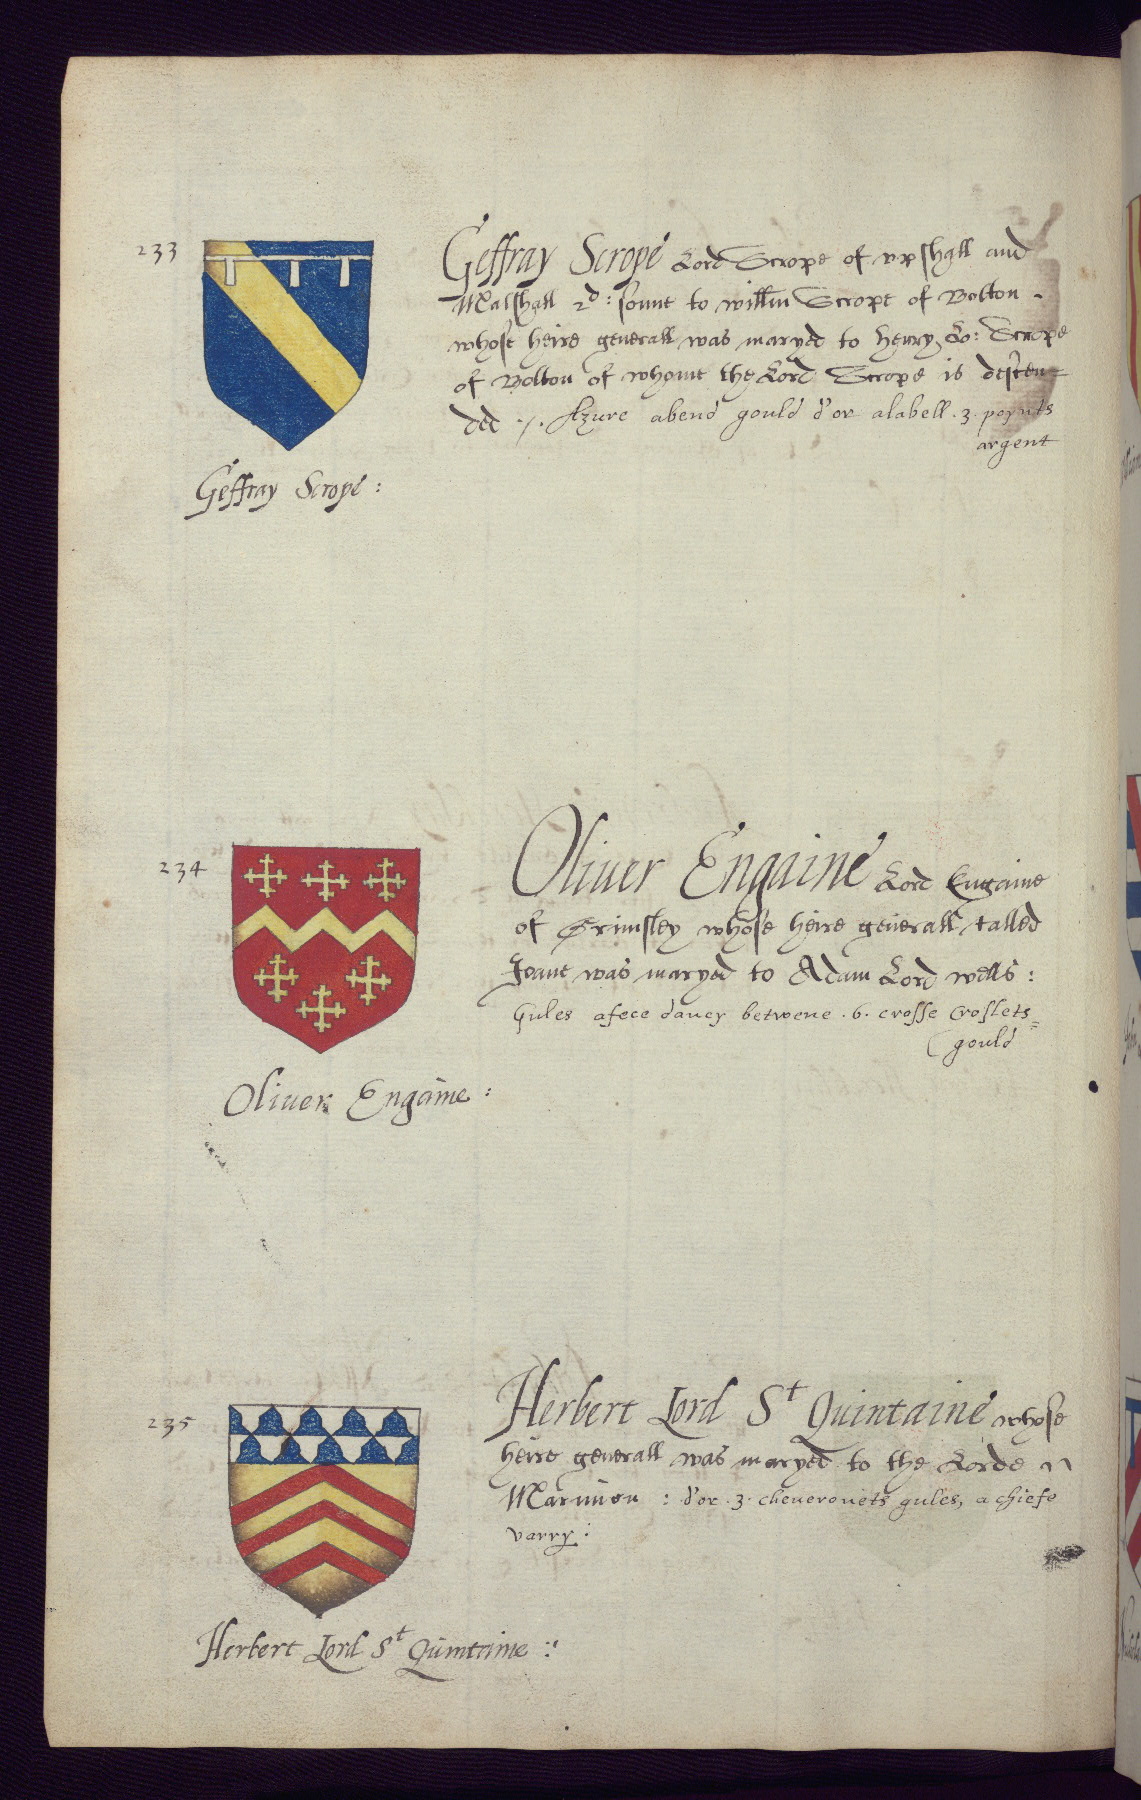 233
Geffray Scrope Lord Scrope of vpshall and
Maisshall 2d: sonne to willm Scrope of Bolton .
whose heire generall was maryed to henry Lo: Scrope
of Bolton of whome the Lord Scrope is descen=
ded ./. Azure abend gould d'or alabell .3. poynts
argent
Geffray Scrope :
234
Oliuer Engaine Lord Engaine
of Grimsley whose heire generall called
Joane was maryed to Adam Lord wells :
Gules afece dancy betwene .6. crosse Croslets=
gould
Oliuer Engaine :
235
Herbert Lord St Quintaine whose
heire generall was maryed to the Lorde
Marmion : d'or .3. cheueronets gules, a chiefe
varry :
Herbert Lord St Quintaine :